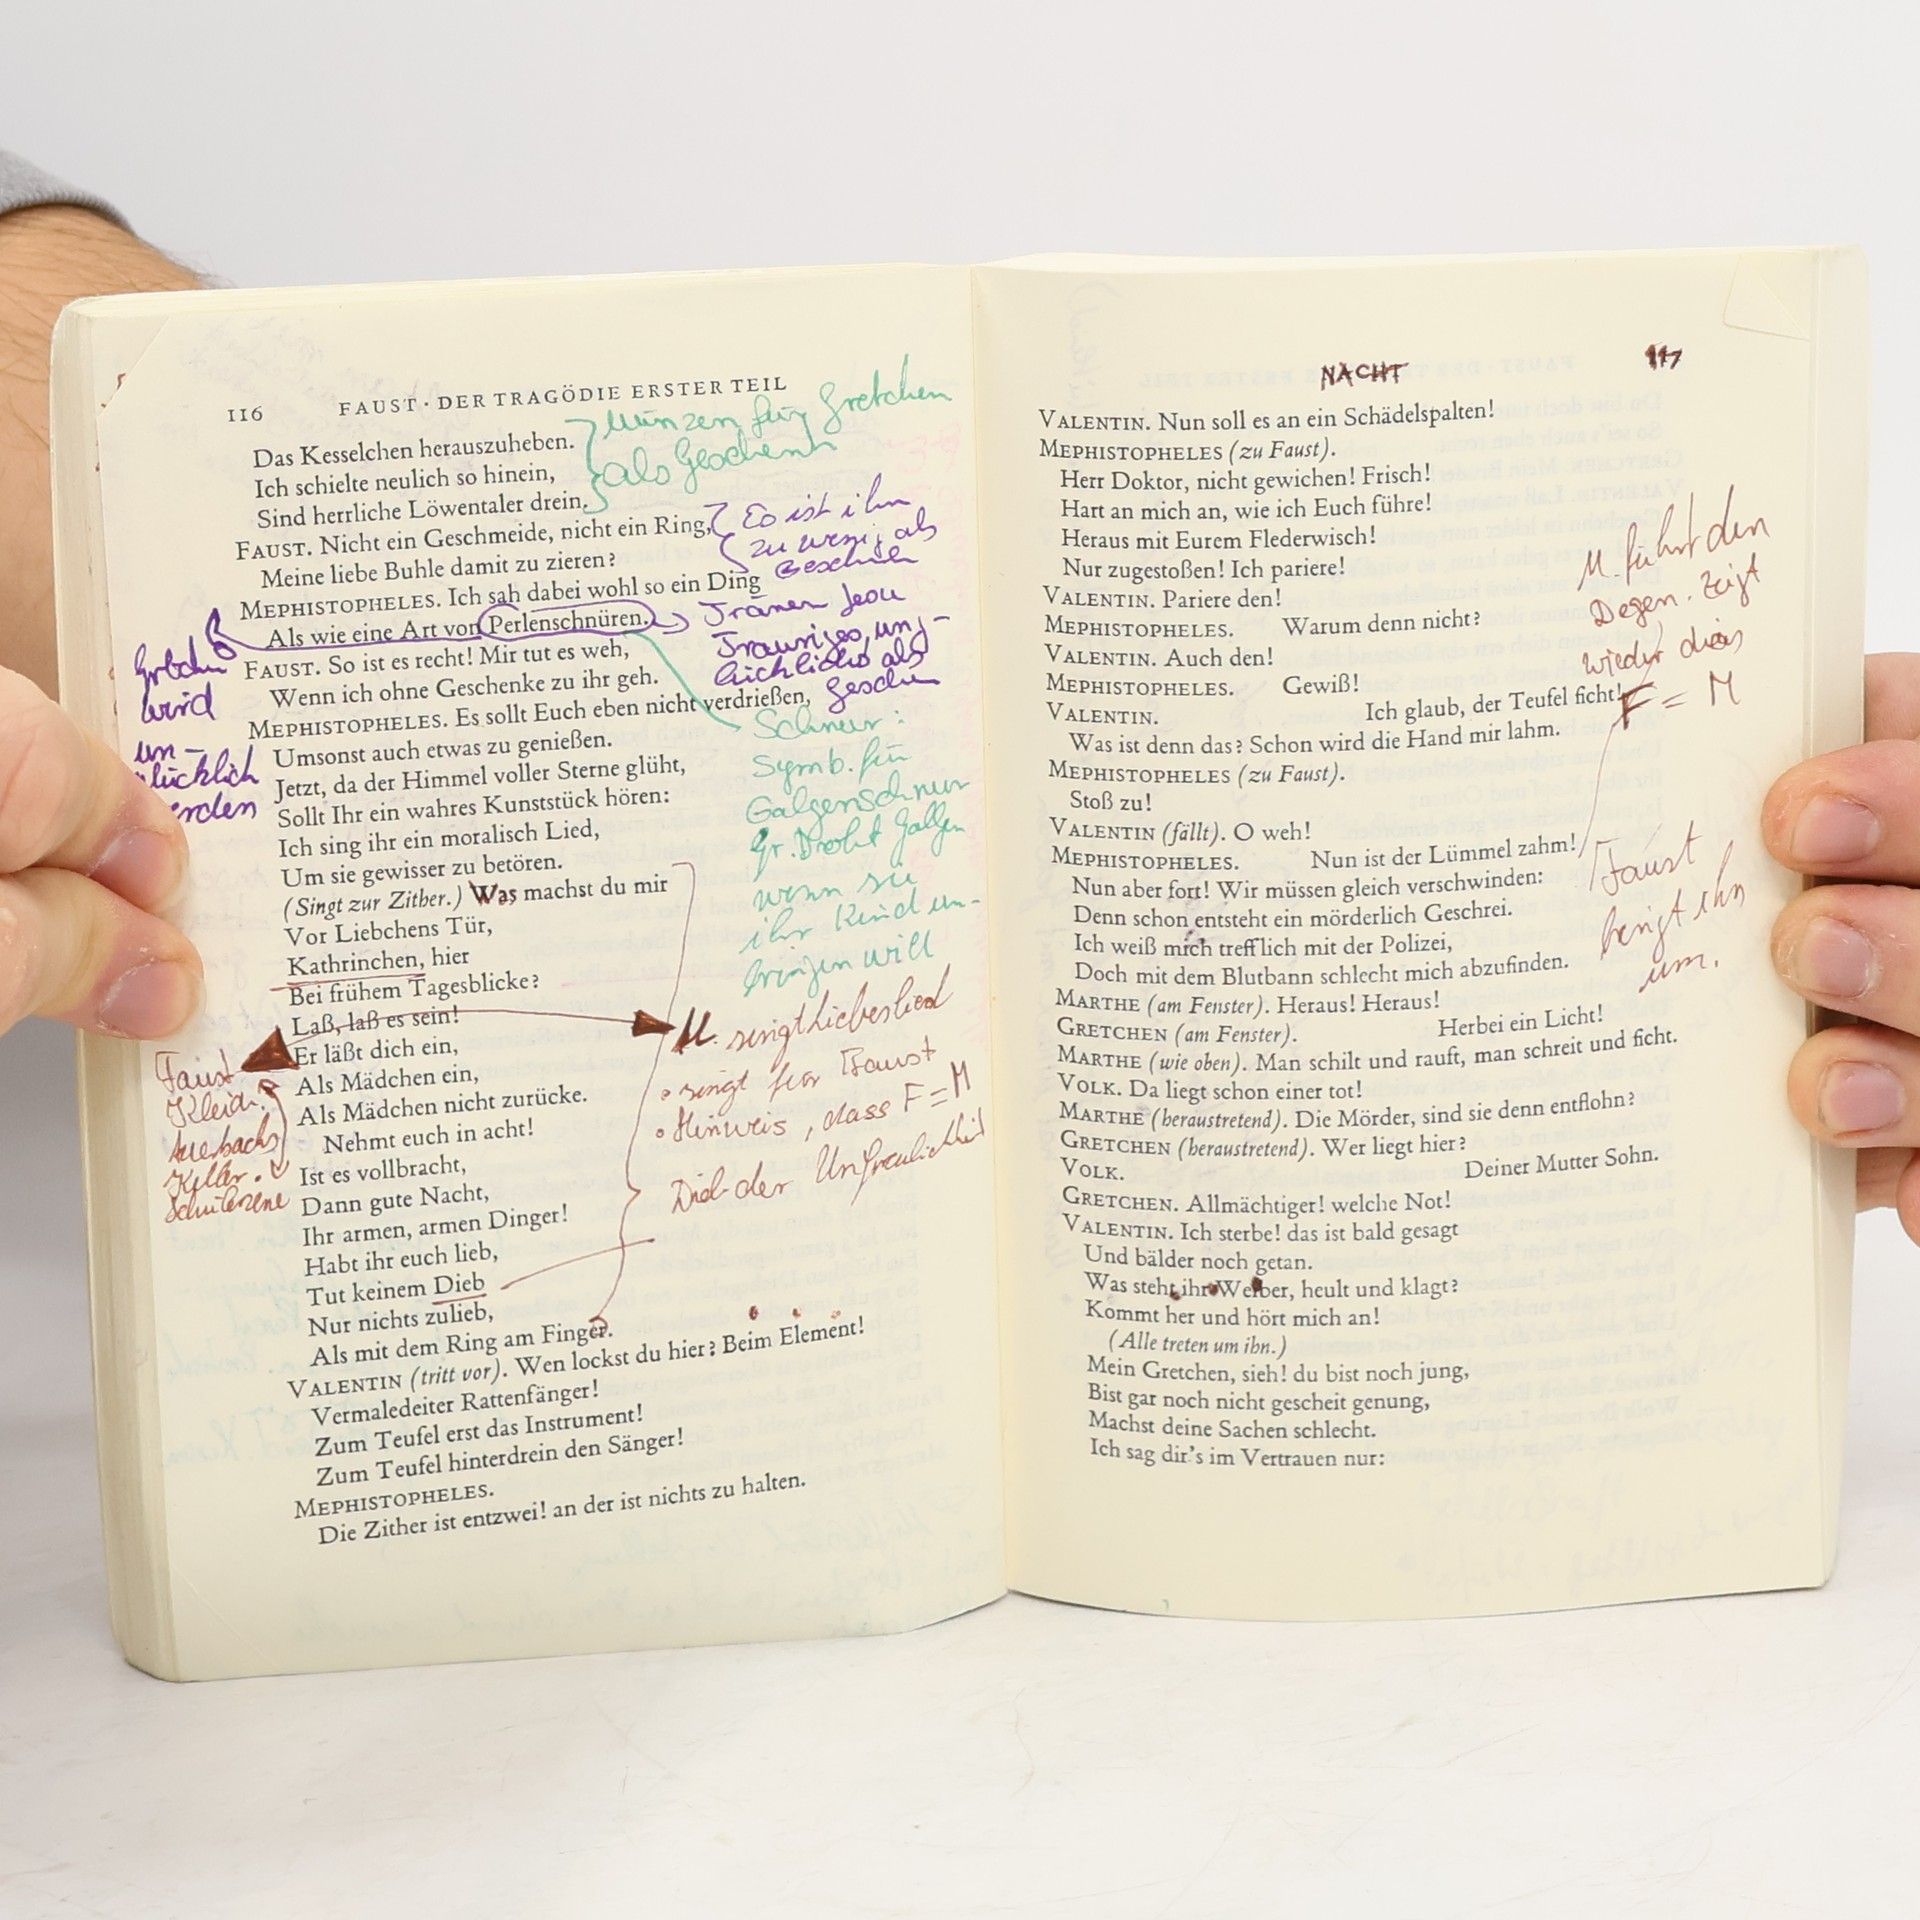 116 FAUST · DER TRAGÖDIE ERSTER TEIL
Das Kesselchen herauszuheben.
Ich schielte neulich so hinein,
Sind herrliche Löwentaler drein.
Münzen für Gretchen
als Geschenk
FAUST. Nicht ein Geschmeide, nicht ein Ring,
Meine liebe Buhle damit zu zieren?
Es ist ihm
zu wenig als
Geschenk
MEPHISTOPHELES. Ich sah dabei wohl so ein Ding
Als wie eine Art von Perlenschnüren.
Tränen
Trauriges, ung-
lückliches als
Geschen
Gretchen
wird
un-
glücklich
werden
FAUST. So ist es recht! Mir tut es weh,
Wenn ich ohne Geschenke zu ihr geh.
MEPHISTOPHELES. Es sollt Euch eben nicht verdrießen,
Umsonst auch etwas zu genießen.
Jetzt, da der Himmel voller Sterne glüht,
Sollt Ihr ein wahres Kunststück hören:
Ich sing ihr ein moralisch Lied,
Um sie gewisser zu betören.
Schnur:
Symb. für
Galgenschnur
Gr. Droht Galgen
wenn sie
ihr Kind um-
bringen will
(Singt zur Zither.) Was machst du mir
Vor Liebchens Tür,
Kathrinchen, hier
Bei frühem Tagesblicke?
Laß, laß es sein!
Er läßt dich ein,
Als Mädchen ein,
Als Mädchen nicht zurücke.
Nehmt euch in acht!
Ist es vollbracht,
Dann gute Nacht,
Ihr armen, armen Dinger!
Habt ihr euch lieb,
Tut keinem Dieb
Nur nichts zulieb,
Als mit dem Ring am Finger.
M. singt Liebeslied
singt für Faust
Hinweis, dass F = M
Dieb der Unfreulichkeit
Faust
Kleid.
Auerbachs
Keller.
Schülerszene
VALENTIN (tritt vor). Wen lockst du hier? Beim Element!
Vermaledeiter Rattenfänger!
Zum Teufel erst das Instrument!
Zum Teufel hinterdrein den Sänger!
MEPHISTOPHELES.
Die Zither ist entzwei! an der ist nichts zu halten.
NACHT 117
VALENTIN. Nun soll es an ein Schädelspalten!
MEPHISTOPHELES (zu Faust).
Herr Doktor, nicht gewichen! Frisch!
Hart an mich an, wie ich Euch führe!
Heraus mit Eurem Flederwisch!
Nur zugestoßen! Ich pariere!
VALENTIN. Pariere den!
MEPHISTOPHELES. Warum denn nicht?
VALENTIN. Auch den!
MEPHISTOPHELES. Gewiß!
VALENTIN. Ich glaub, der Teufel ficht!
Was ist denn das? Schon wird die Hand mir lahm.
M. führt den
Degen. Zeigt
wieder dass
F = M
MEPHISTOPHELES (zu Faust).
Stoß zu!
VALENTIN (fällt). O weh!
MEPHISTOPHELES. Nun ist der Lümmel zahm!
Nun aber fort! Wir müssen gleich verschwinden:
Denn schon entsteht ein mörderlich Geschrei.
Ich weiß mich trefflich mit der Polizei,
Doch mit dem Blutbann schlecht mich abzufinden.
Faust
bringt ihn
um.
MARTHE (am Fenster). Heraus! Heraus!
GRETCHEN (am Fenster). Herbei ein Licht!
MARTHE (wie oben). Man schilt und rauft, man schreit und ficht.
VOLK. Da liegt schon einer tot!
MARTHE (heraustretend). Die Mörder, sind sie denn entflohn?
GRETCHEN (heraustretend). Wer liegt hier?
VOLK. Deiner Mutter Sohn.
GRETCHEN. Allmächtiger! welche Not!
VALENTIN. Ich sterbe! das ist bald gesagt
Und bälder noch getan.
Was steht ihr Weiber, heult und klagt?
Kommt her und hört mich an!
(Alle treten um ihn.)
Mein Gretchen, sieh! du bist noch jung,
Bist gar noch nicht gescheit genung,
Machst deine Sachen schlecht.
Ich sag dir's im Vertrauen nur: